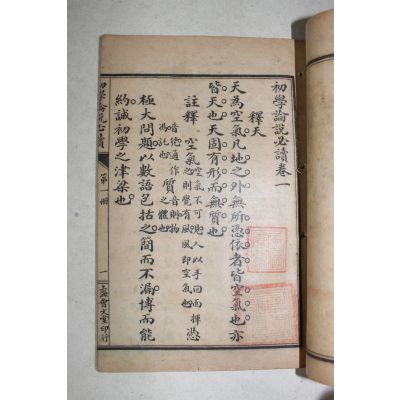 初學論說必讀卷一
釋天
天為空氣凡地之外無所憑依者皆空氣也亦
皆天也天固有形而無質也
註釋 空氣空氣不可見人以手回而揮之則覺有風風即空氣也憑
音凭通作馮託也質音隲物之體也
極大問題以數語包括之簡而不漏博而能
約誠初學之津梁也
初學論說必讀
第一冊
一
上海會文堂印行